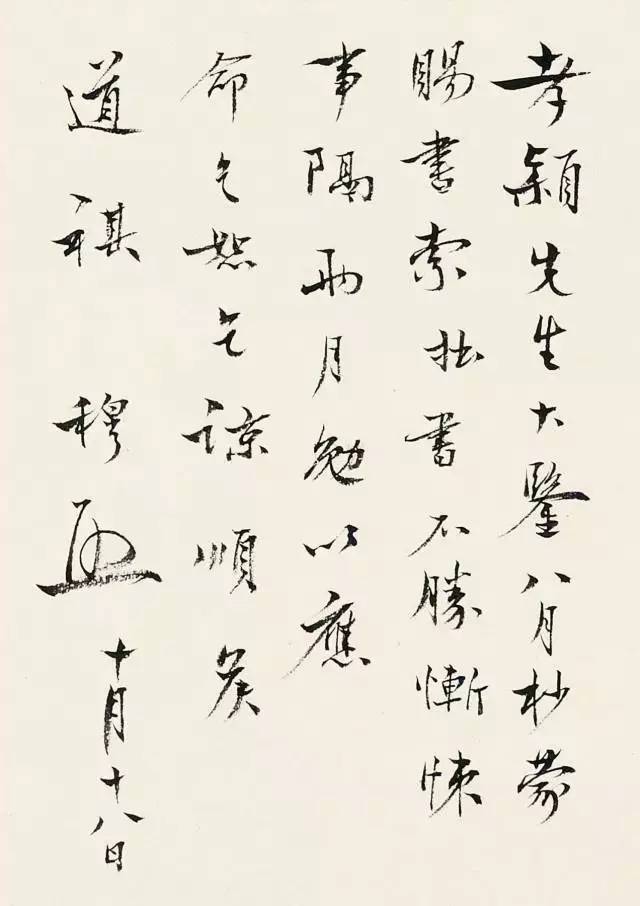 孝颖先生大鑒八月杪蒙
賜書索拙書不勝慚悚
事隔兩月勉以應
命乞恕乞諒順矦
道祺 穆
十月十八日